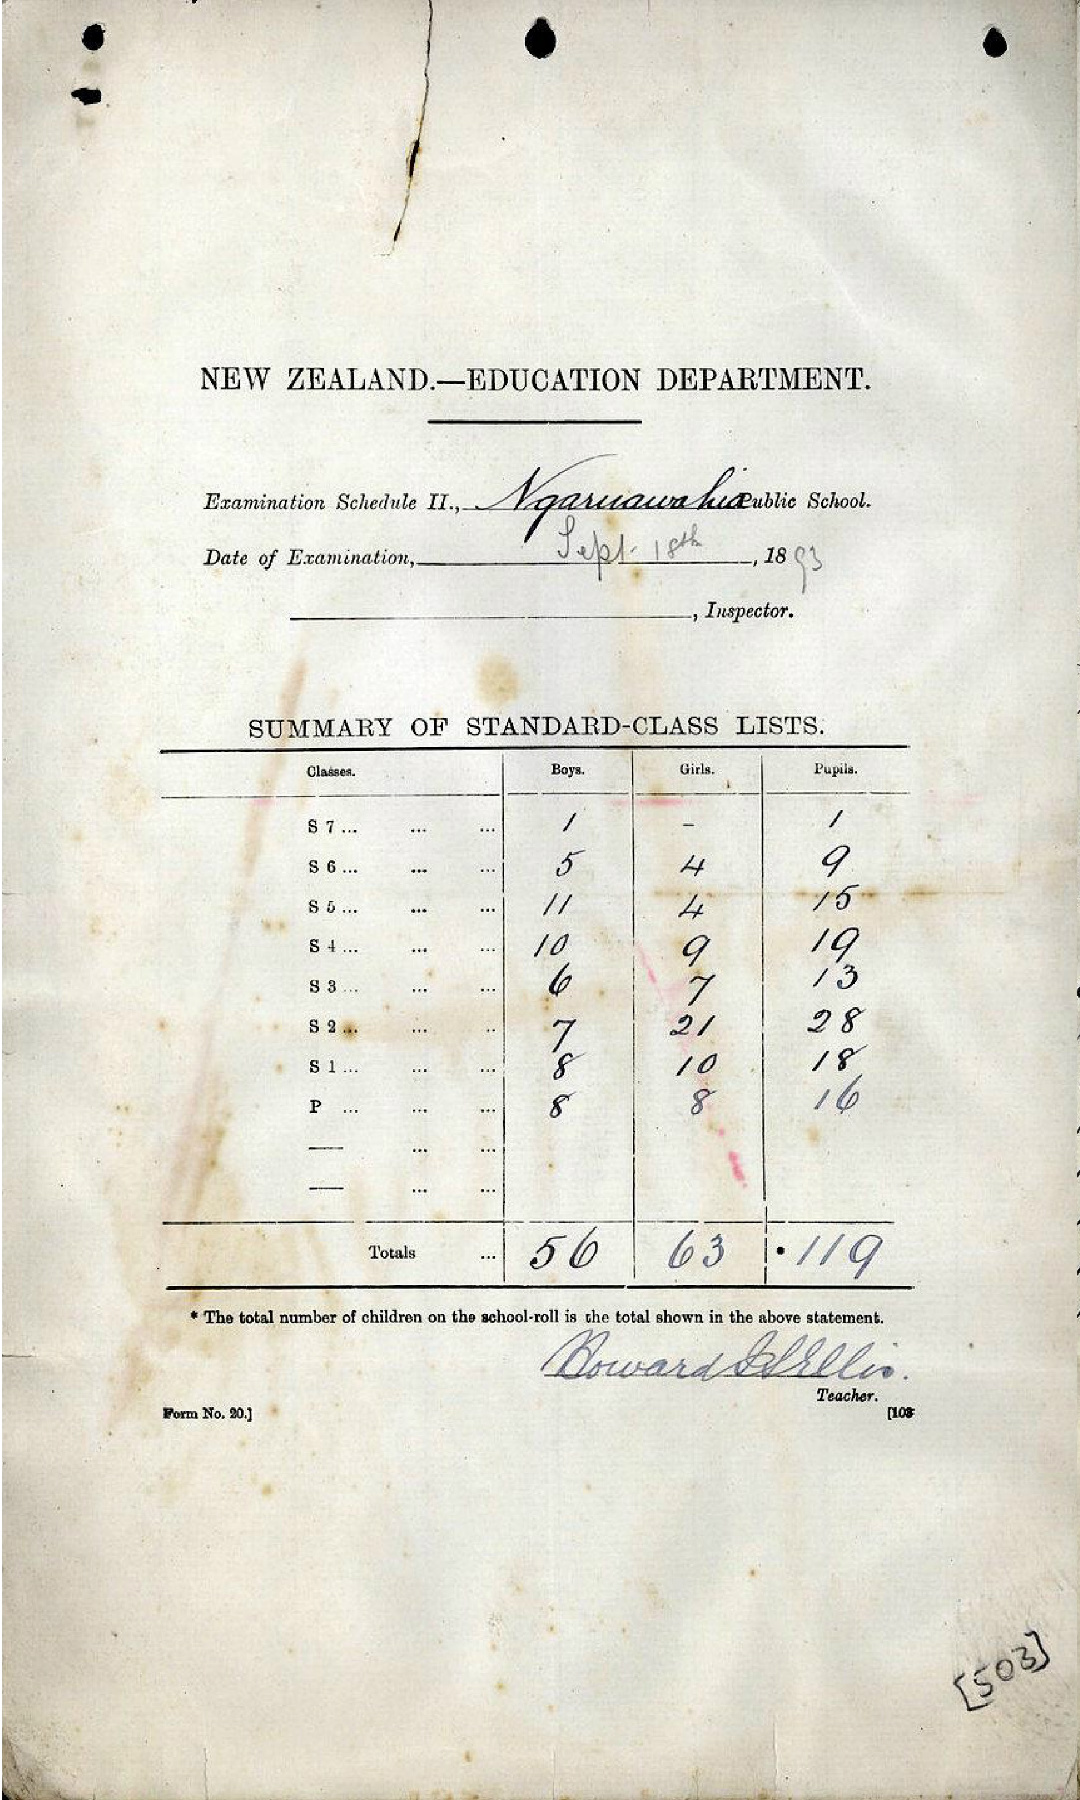 NEW ZEALAND.—EDUCATION DEPARTMENT.
Examination Schedule II., Ngaruawahia Public School.
Date of Examination, Sept. 18th, 1893
, Inspector.
SUMMARY OF STANDARD-CLASS LISTS.
Classes. Boys. Girls. Pupils.
S 7 ... ... ... 1 – 1
S 6 ... ... ... 5 4 9
S 5 ... ... ... 11 4 15
S 4 ... ... ... 10 9 19
S 3 ... ... ... 6 7 13
S 2 ... ... .. 7 21 28
S 1 ... ... ... 8 10 18
P ... ... ... 8 8 16
— ... ...
— ... ...
Totals ... 56 63 • 119
* The total number of children on the school-roll is the total shown in the above statement.
Howard Ellis.
Teacher.
Form No. 20.] [103
[503]